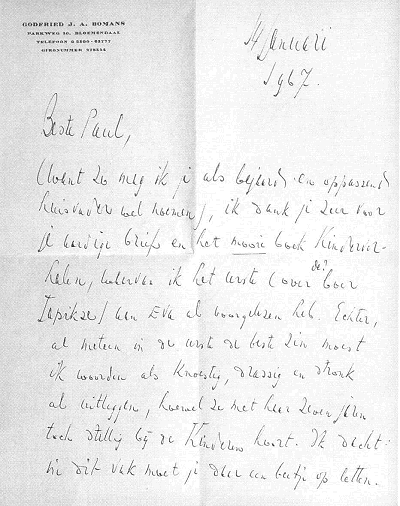 GODFRIED J. A. BOMANS
PARKWEG 10, BLOEMENDAAL
TELEFOON
GIRONUMMER
Januari
1967.
Beste Paul,
(want zo mag ik je als bejaard en oppassend
huisvader wel noemen), ik dank je zeer voor
je aardige brief en het mooie boek Kinderver-
halen, waarvan ik het eerste (over de boer
) aan Eva al voorgelezen heb. Echter,
al meteen in de eerste de beste zin moest
ik woorden als knoestig, drassig en stronk
al uitleggen, hoewel ze met haar zeven jaren
toch stellig bij de Kinderen hoort. Ik dacht:
in dit vak moet je daar een beetje op letten.